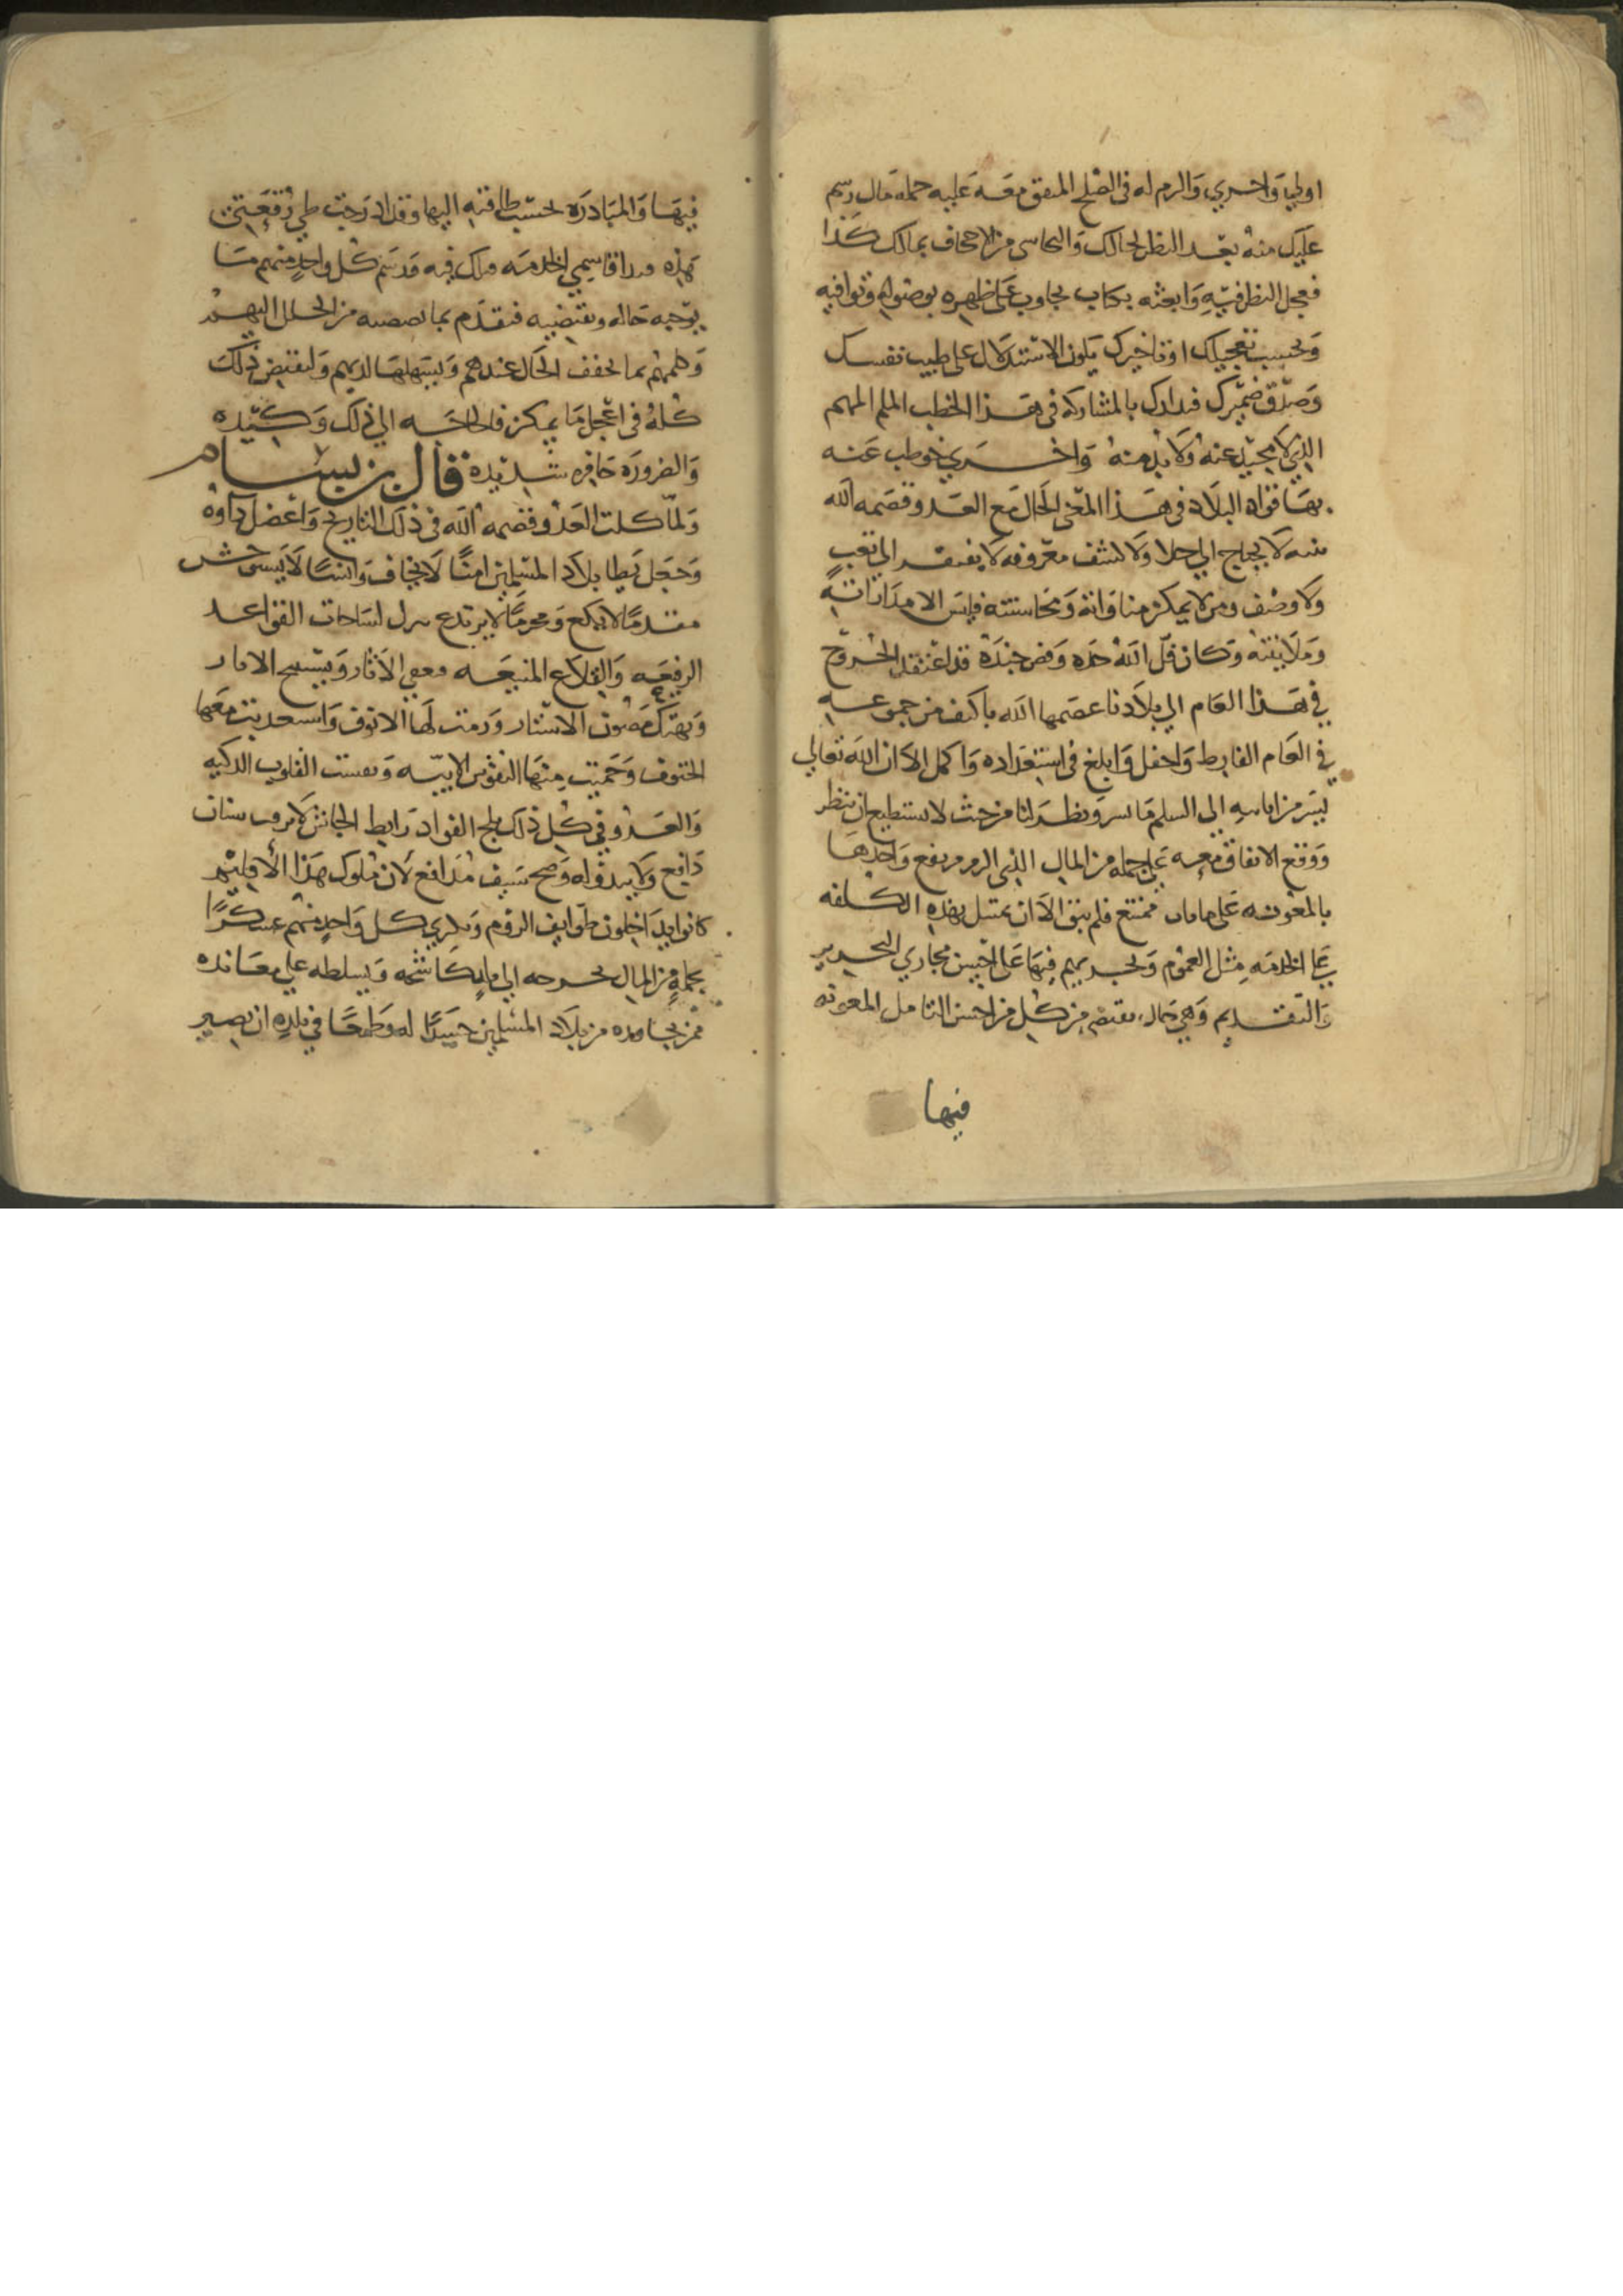 اوليا واخري والزم له في الصلح المتفق معه عليه جملة مال رسم
عليك منه بعد النظر لحالك والتحاسي من الاجحاف بمالك كذا
فعجل النظر فيه وابعثه بكتاب يجاوب على ظهره بوصوله وتوافيه
وبحسب تعجيلك او تاخيرك يكون الاستدلال على طيب نفسك
وصدق ضميرك فبدارك بالمشاركه في هذا الخطب الملم المهم
الذي لا محيد عنه ولا بد منه واخري خوطب عنه
بها قواد البلاد في هذا المعني الحال مع العدو قصمه الله
بينه لا يحتاج الي جلا ولا كشف معروفه لا يفتقر الي نعت
ولا وصف ومن لا يمكن مناواته ومخاشنته فليس الا مداراته
وملاينته وكان فل الله حده وفض جنده قد اعتقد الخروج
في هذا العام الي بلادنا عصمها الله باكثف من جموعه
في العام الفارط واحفل وابلغ في استعداده واكمل الا ان الله تعالي
يسر من انابته الي السلم ما يسر ونظر لنا من حيث لا نستطيع ان ننظر
ووقع الاتفاق معه علي جمله من المال الذي
بالمعونه علي ممتنع فلم يبق الا ان تمتثل بهذه الكلفه
رعايا الخدمه مثل العموم وتجريهم فيها علي احسن مجاري التحرير
والتقديم وهي حال تقتضي من كل من احسن التامل المعونه
فيها
فيها والمبادره بحسب طاقته اليها وقد ادرجت طي رقعتي
هذه قاسمي الخدمه قبلك فيه قد رسم كل واحد منهم ما
يوجبه حاله ويقتضيه فتقدم بما تضمنه من الجلل اليهم
وكلمهم بما يخفف الحال عندهم ويسهلها لديهم ولتقتض ذلك
كله في اعجل ما يمكن فالحاجه الي ذلك وكيده
والضروره حافزه شديده قال بن بسام
ولما كلب العدو قصمه الله في ذلك التاريخ واعضل داوه
وجعل يطا بلاد المسلمين امنا لا يخاف وانسا لا يستوحش
مقدما لا يكع ومجرما لا يرتدع ينزل لساحات القواعد
الرفيعه والقلاع المنيعه فيعفي الاثار ويستبيح الامار
ويهتك مصون الاستار ورمت لها الانوف واستعذبت معها
الحتوف وحميت منها النفوس الابيه ويئست القلوب الذكيه
والعدو في كل ذلك ثلج الفواد رابط الجاش لا يروب سنان
دافع ولا يبدو له وضح سيف مدافع لان ملوك هذا الاقليم
كانوا يداخلون طوايف الروم ويكري كل واحد منهم عسكرا
بجملة من المال يخرجه الي من يكاشحه ويسلطه علي معانده
ممن يجاوره من بلاد المسلمين حسدا له وطمعا في بلده ان يصير